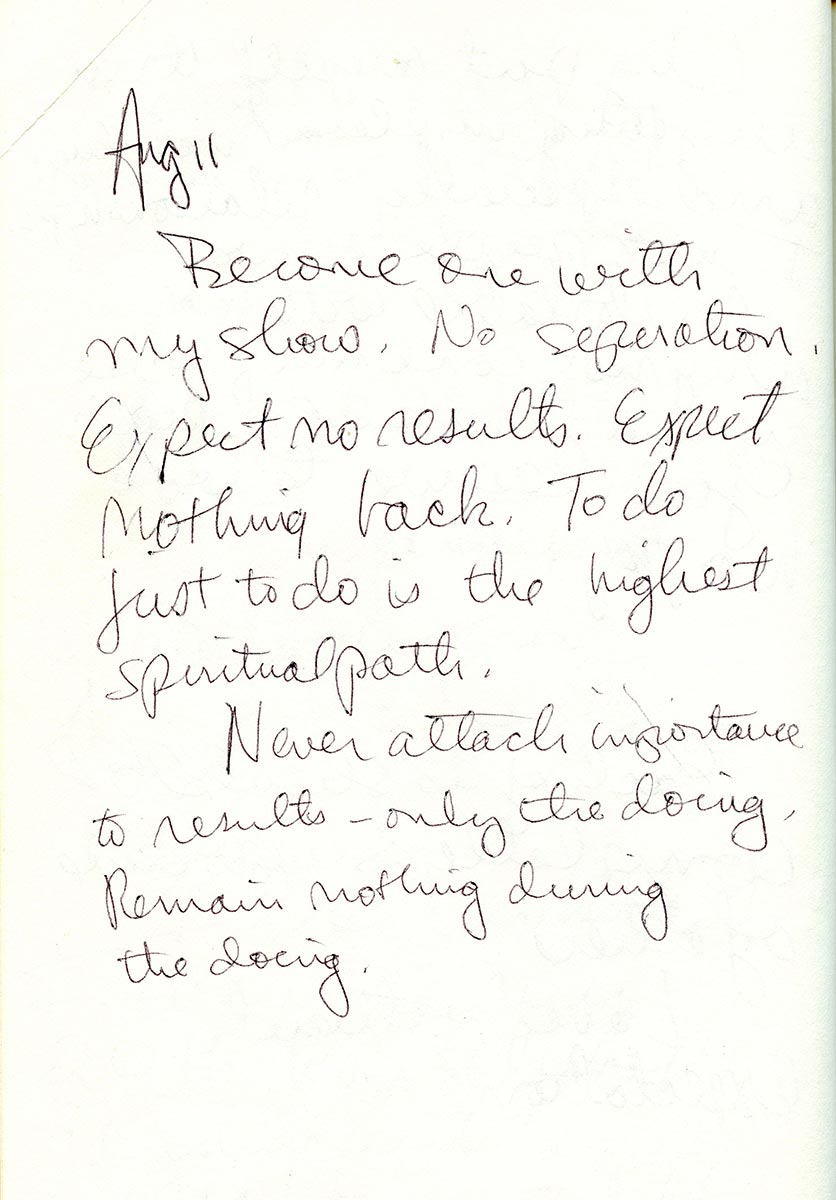 Aug 11
Become one with
my show. No seperation.
Expect no results. Expect
nothing back. To do
just to do is the highest
spiritual path.
Never attach importance
to results – only the doing.
Remain nothing during
the doing.